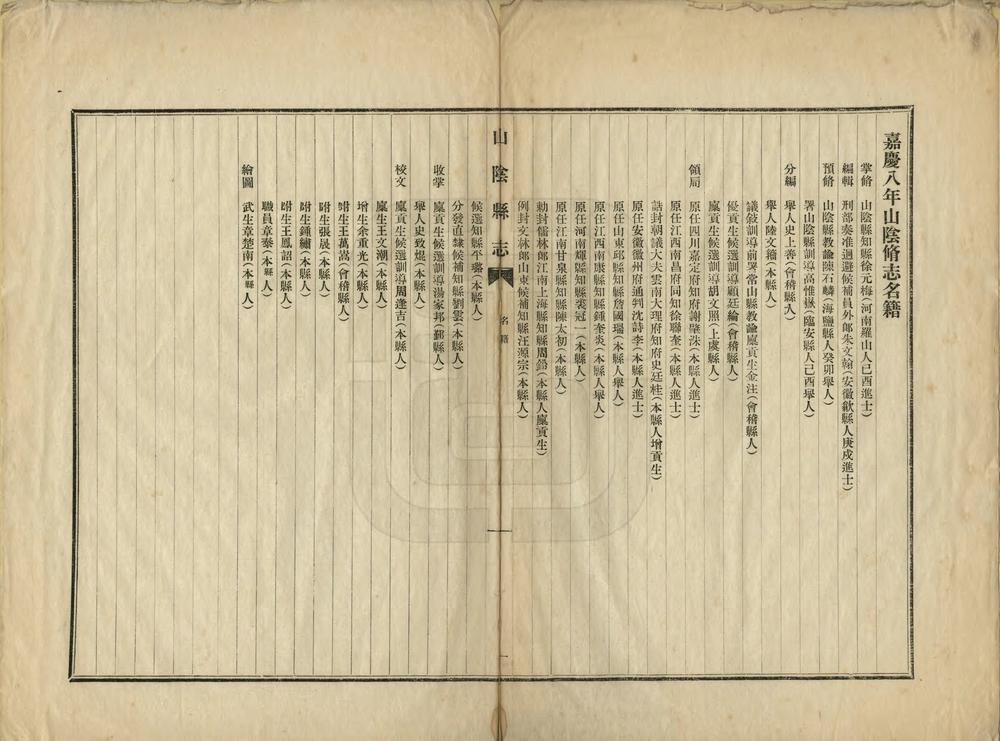 嘉慶八年山陰脩志名籍
掌脩 山陰縣知縣徐元梅(河南羅山人己酉進士)
編輯 刑部奏准迴避候補員外郎朱文翰(安徽歙縣人庚戌進士)
預脩 山陰縣教諭陳石麟(海鹽縣人癸卯舉人)
署山陰縣訓導高惟嶽(臨安縣人己酉舉人)
分編 舉人史上善(會稽縣人)
舉人陸文籀(本縣人)
議敘訓導前署常山縣教諭廩貢生金注(會稽縣人)
優貢生候選訓導顧廷綸(會稽縣人)
廩貢生候選訓導胡文照(上虞縣人)
領局 原任四川嘉定府知府謝肇洙(本縣人進士)
原任江西南昌府同知徐聯奎(本縣人進士)
誥封朝議大夫雲南大理府知府史廷桂(本縣人增貢生)
原任安徽徽州府通判沈詩李(本縣人進士)
原任山東邱縣知縣詹國瑞(本縣人舉人)
原任江西南康縣知縣鍾奎炎(本縣人舉人)
原任河南輝縣知縣裘冠一(本縣人)
原任江南甘泉縣知縣陳太初(本縣人)
勅封儒林郎江南上海縣知縣周鎬(本縣人廩貢生)
例封文林郎山東候補知縣汪源宗(本縣人)
山陰縣志
名籍
一
候選知縣平璐(本縣人)
分發直隸候補知縣劉雲(本縣人)
收掌 廩貢生候選訓導湯家邦(鄞縣人)
舉人史致焜(本縣人)
校文 廩貢生候選訓導周逢吉(本縣人)
廩生王文潮(本縣人)
增生余重光(本縣人)
附生王萬嵩(會稽縣人)
附生張晟(本縣人)
附生鍾繡(本縣人)
附生王鳳詔(本縣人)
職員章泰(本縣人)
繪圖 武生章楚南(本縣人)